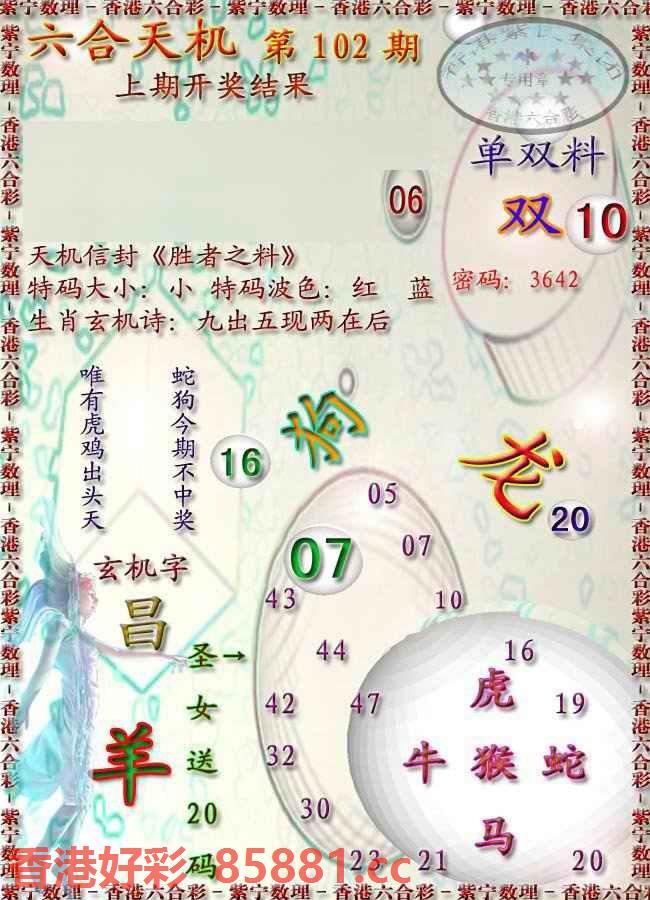 紫宁数理－香港六合彩－紫宁数理－香港六合彩－紫宁数理－香港六合彩
六合天机 第 102 期
上期开奖结果
专用章
香港六合彩
单双料
双 10
06
天机信封《胜者之料》
特码大小：小 特码波色：红 蓝
密码：3642
生肖玄机诗：九出五现两在后
唯有虎鸡出头天
蛇狗今期不中奖
狗
16
龙
20
05
07
07
玄机字
昌
43
10
圣→
女
送
20
码
44
16
虎
42
47
19
羊
牛 猴 蛇
32
30
马
23
21
20
香港好彩 85881.cc
紫宁数理－香港六合彩－紫宁数理－香港六合彩－紫宁数理－香港六合彩